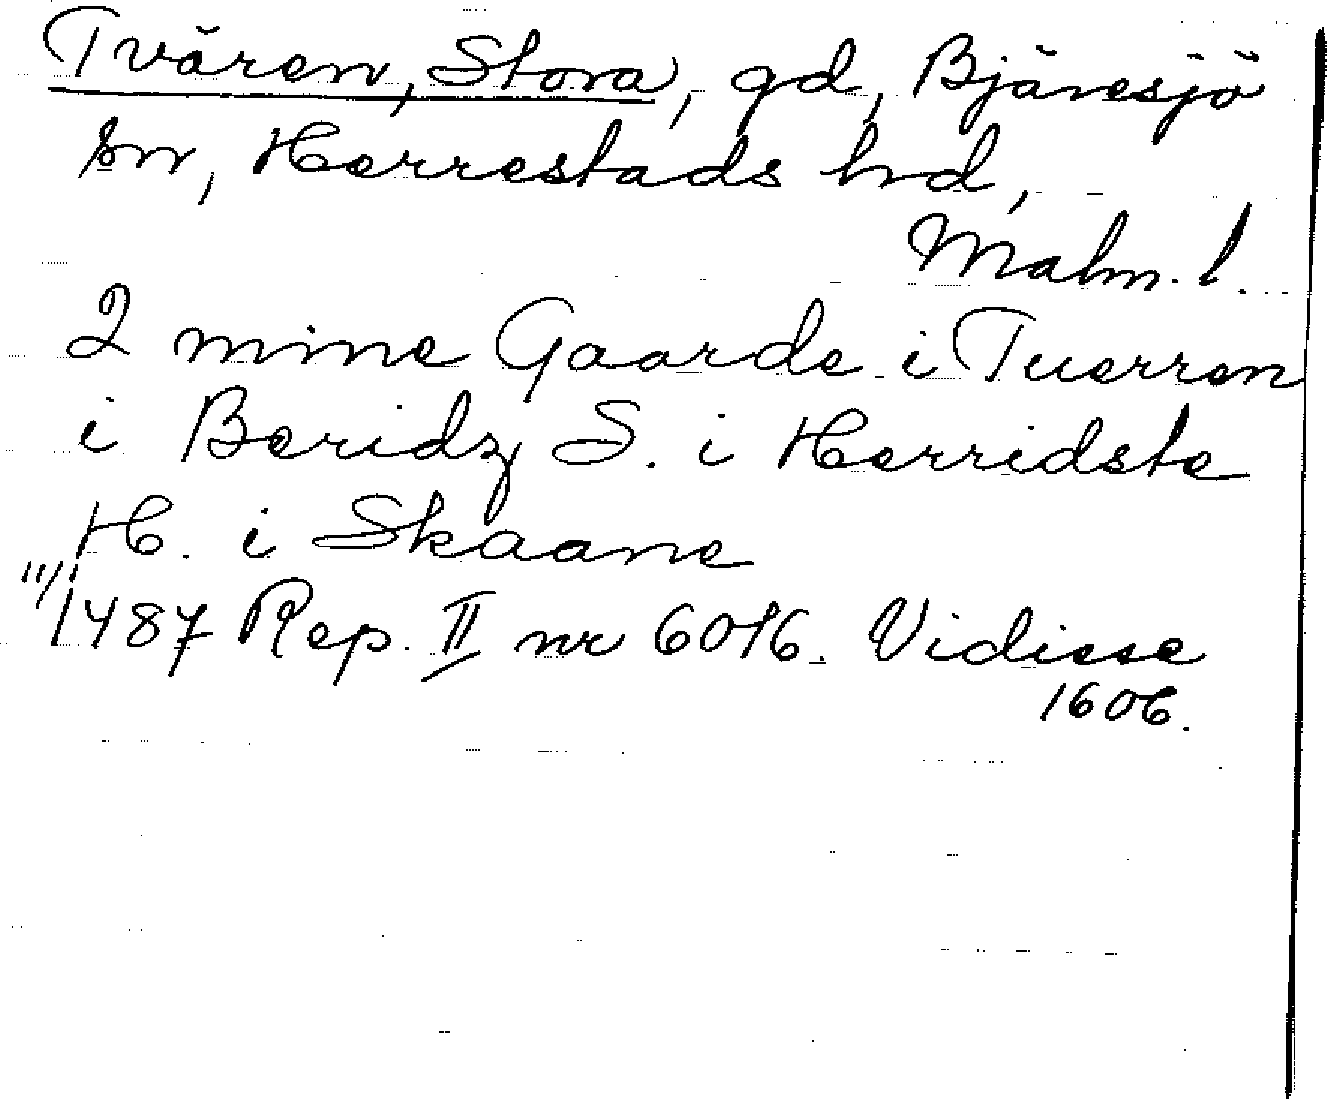 Tvären, Stora, gd, Bjäresjö
sn, Herrestads hrd,
Malm. l.
2 mine Gaarde i Tuerren
i Beridz S. i Herridste
H. i Skaane
11/1 1487 Rep. II nr 6016. Vidisse
1606.